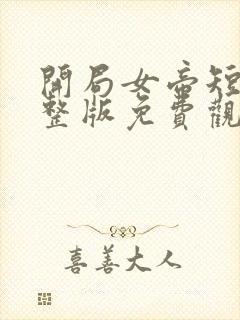 開局女帝短
整版免費觀
喜善大人